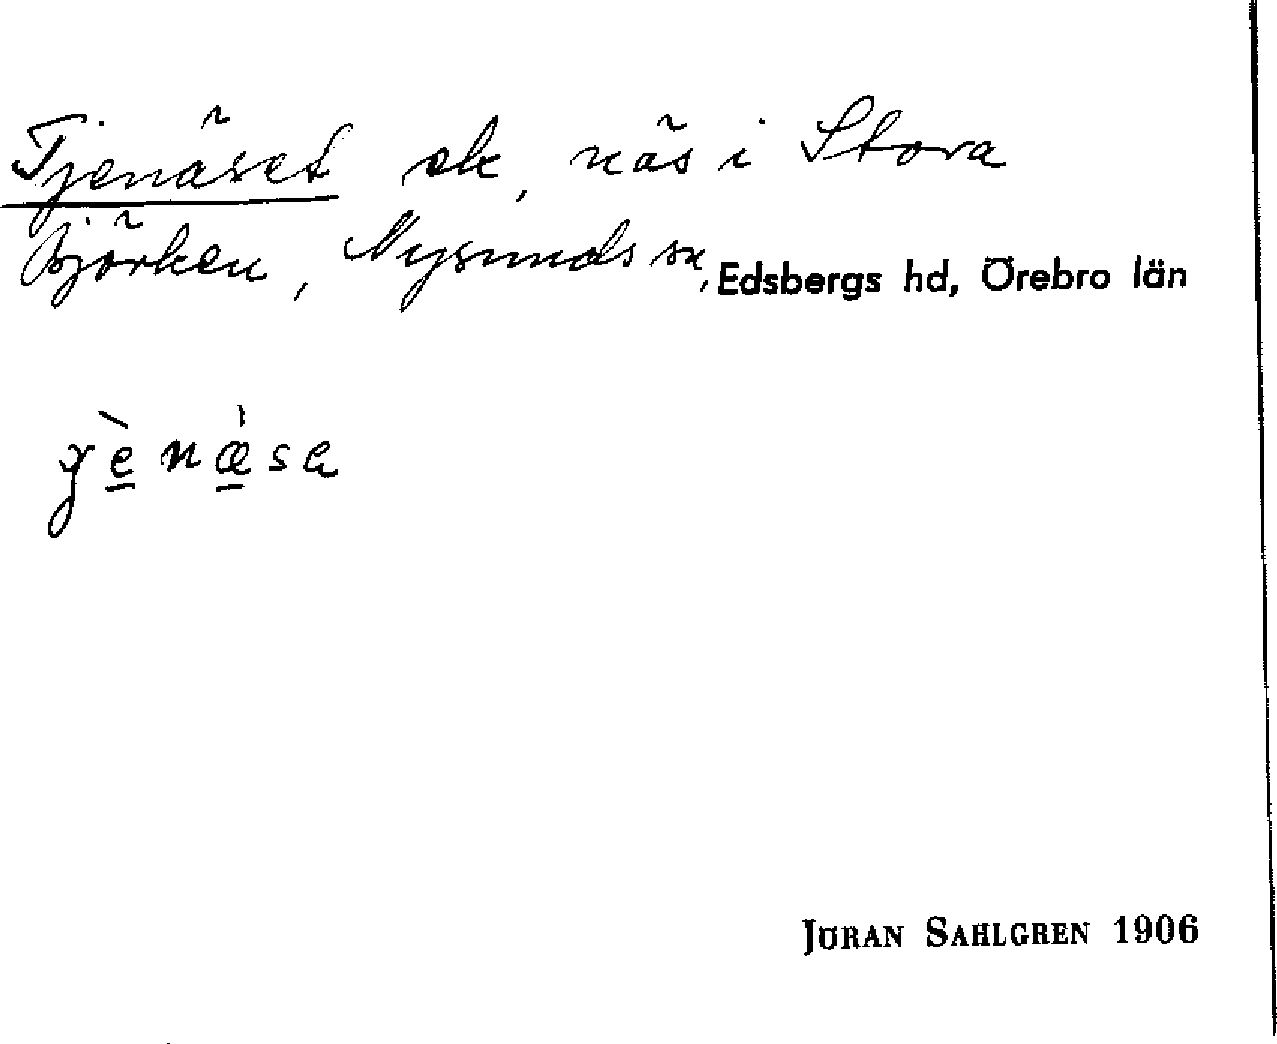 Tjenäset ek, näs i Stora
Björken, Nysunds sn, Edsbergs hd, Örebro län
JÖRAN SAHLGREN 1906